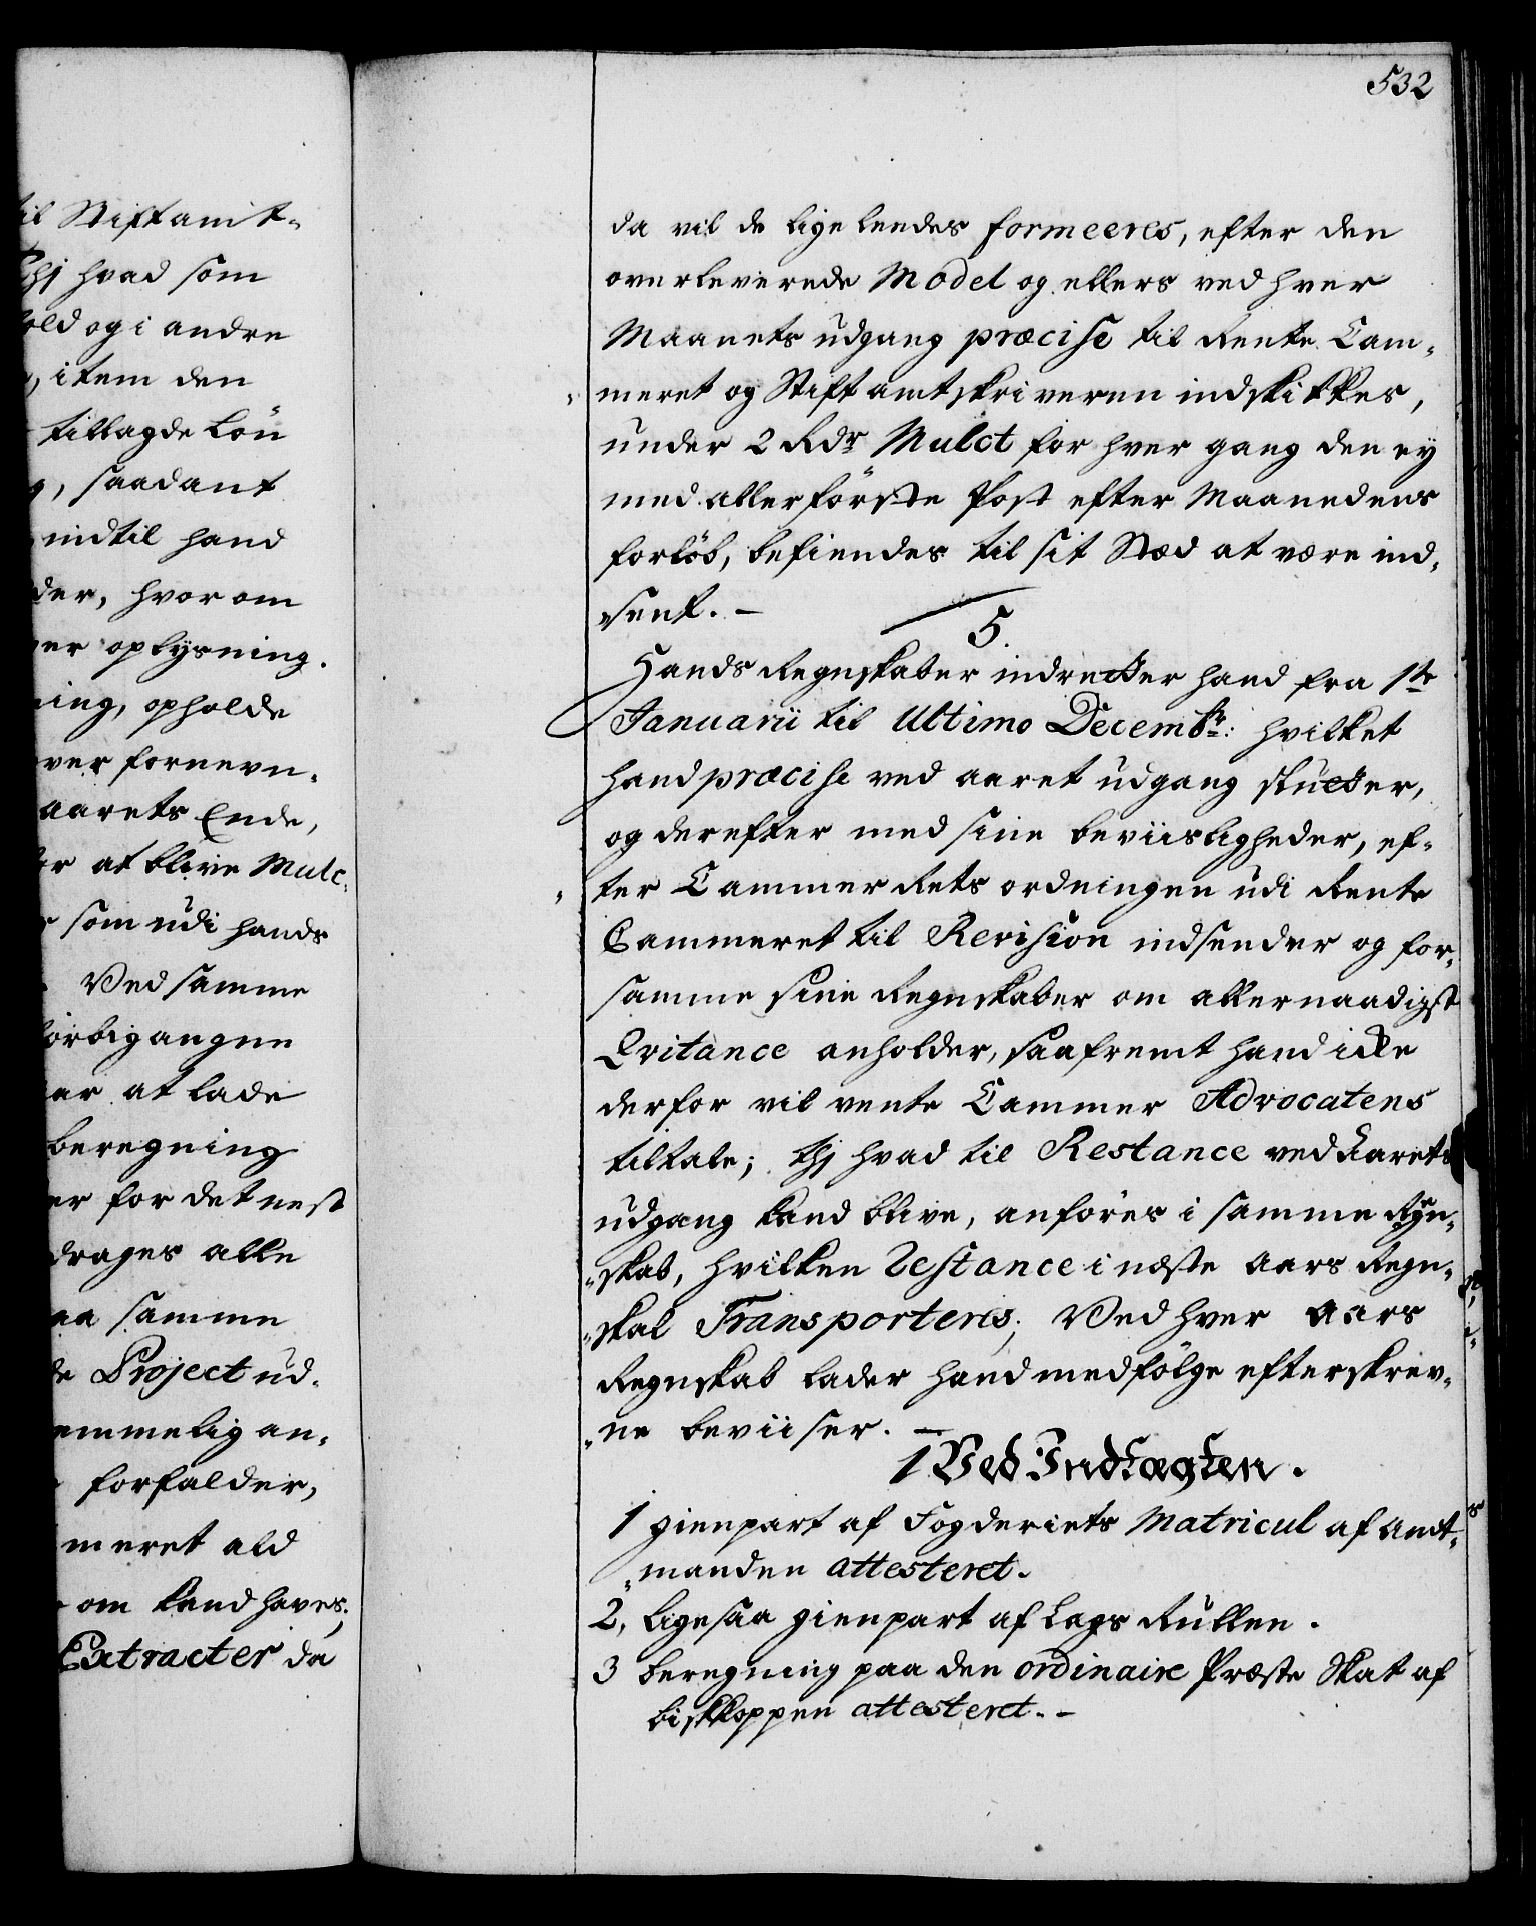 til Stiftamt-
Thj hvad som
old og i andre
, item den
tillagde Lön
, saadant
indtil hand
der, hvorom
er oplysning.
ning, opholde
ver fornevn-
aarets Ende,
er at blive Mulc-
som udi hands
Ved samme
forbigangne
ar at lade
beregning
er for det nest
drages alle
aa samme
de Project ud-
emmelig an-
forfalder,
meret ald
om kand haves,
Extracter da
532
da vil de ligeleedes formeeres, efter den
overleverede Model og ellers ved hver
Maanets udgang præcise til Rente Cam-
meret og Stiftamtskriveren indskikkes,
under 2 Rdr Mulct for hver gang den ey
med allerförste Post efter Maanedens
forlöb, befindes til sit Stæd at være ind-
sent. –
5.
Hands Regnskaber indretter hand fra 1te
Januarii til Ultimo Decembr: hvilket
hand præcise ved aaret udgang slutter,
og derefter med sine beviisligheder, ef-
ter Cammer Rets ordningen udi Rente
Cammeret til Revision indsender og for
samme sine Regnskaber om allernaadigst
Qvitance anholder, saafremt hand icke
derfor vil vente Cammer Advocatens
tiltale; thj hvad til Restance ved Aarets
udgang kand blive, anföres i samme Regn-
skab, hvilken Restance i næste Aars Regn-
skal Transporteres; Ved hver Aars
Regnskab lader hand medfölge efterskrev-
ne beviiser. –
1 Ved Indtægten.
1 gienpart af Fogderiets Matricul af Amt-
manden attesteret.
2, ligesaa gienpart af Legs Rullen.
3 beregning paa den ordinaire Præste Skat af
biskoppen attesteret. –